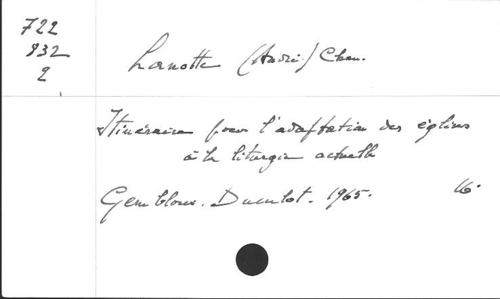 722
832
2
Lanotte (André) Chan.
Itinéraire pour l'adaptation des églises
à la liturgie actuelle
Gembloux. Duculot. 1965. 16.